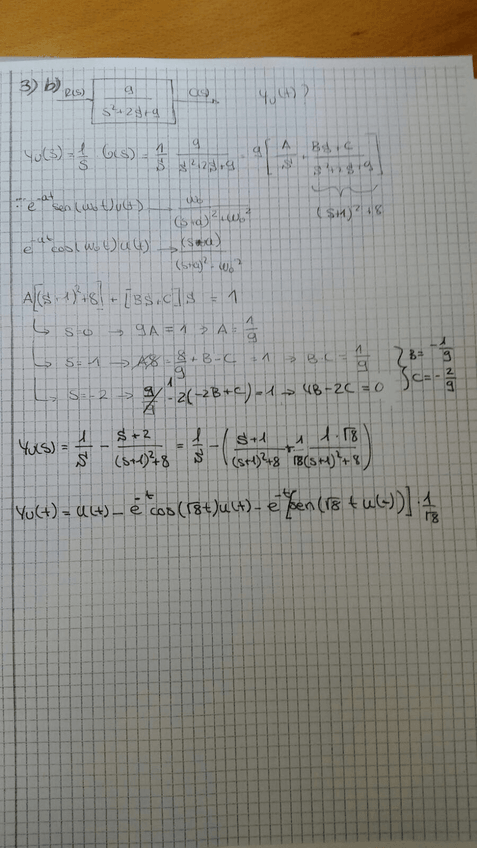 3) b) R(s) 9/(s²+2s+9) C(s) yu(t)?
Yu(s) = 1/s G(s) = 1/s · 9/(s²+2s+9) = 9 [A/s + (Bs+C)/(s²+2s+9)]
(s+1)²+8
e^-at sen(ω₀t)u(t) → ω₀/((s+a)²+ω₀²)
e^-at cos(ω₀t)u(t) → (s+a)/((s+a)²+ω₀²)
A[(s+1)²+8] + [Bs+C]s = 1
↳ s=0 → 9A=1 → A=1/9
↳ s=-1 → A8 = 8/9 + B-C = 1 → B-C = 1/9 } B=-1/9
↳ s=-2 → 9/9 -2(-2B+C)=1 → 4B-2C=0 } C=-2/9
Yu(s) = 1/s - (s+2)/((s+1)²+8) = 1/s - ((s+1)/((s+1)²+8) + 1/√8 · 1·√8/((s+1)²+8))
yu(t) = u(t) - e^-t cos(√8t)u(t) - e^-t [sen(√8 t u(t))] · 1/√8